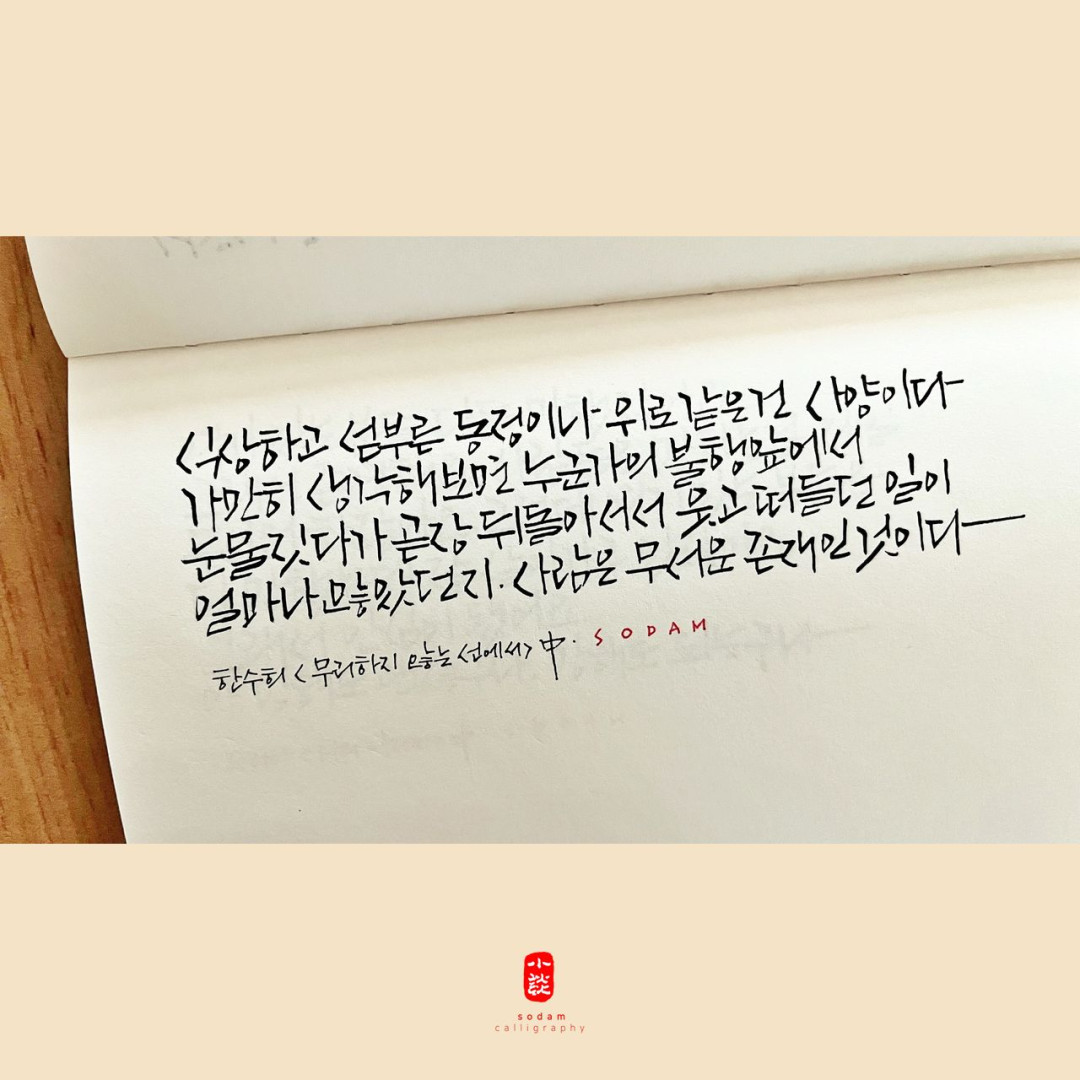 식상하고 섬부른 동정이나 위로같은건 사양이다
가만히 생각해보면 누군가의 불행앞에서
눈물짓다가 곧장 뒤돌아서서 웃고 떠들던 일이
얼마나 많았던지. 사람은 무서운 존재인것이다
한수희 <무리하지 않는 선에서> 中. SODAM
小談
sodam
calligraphy